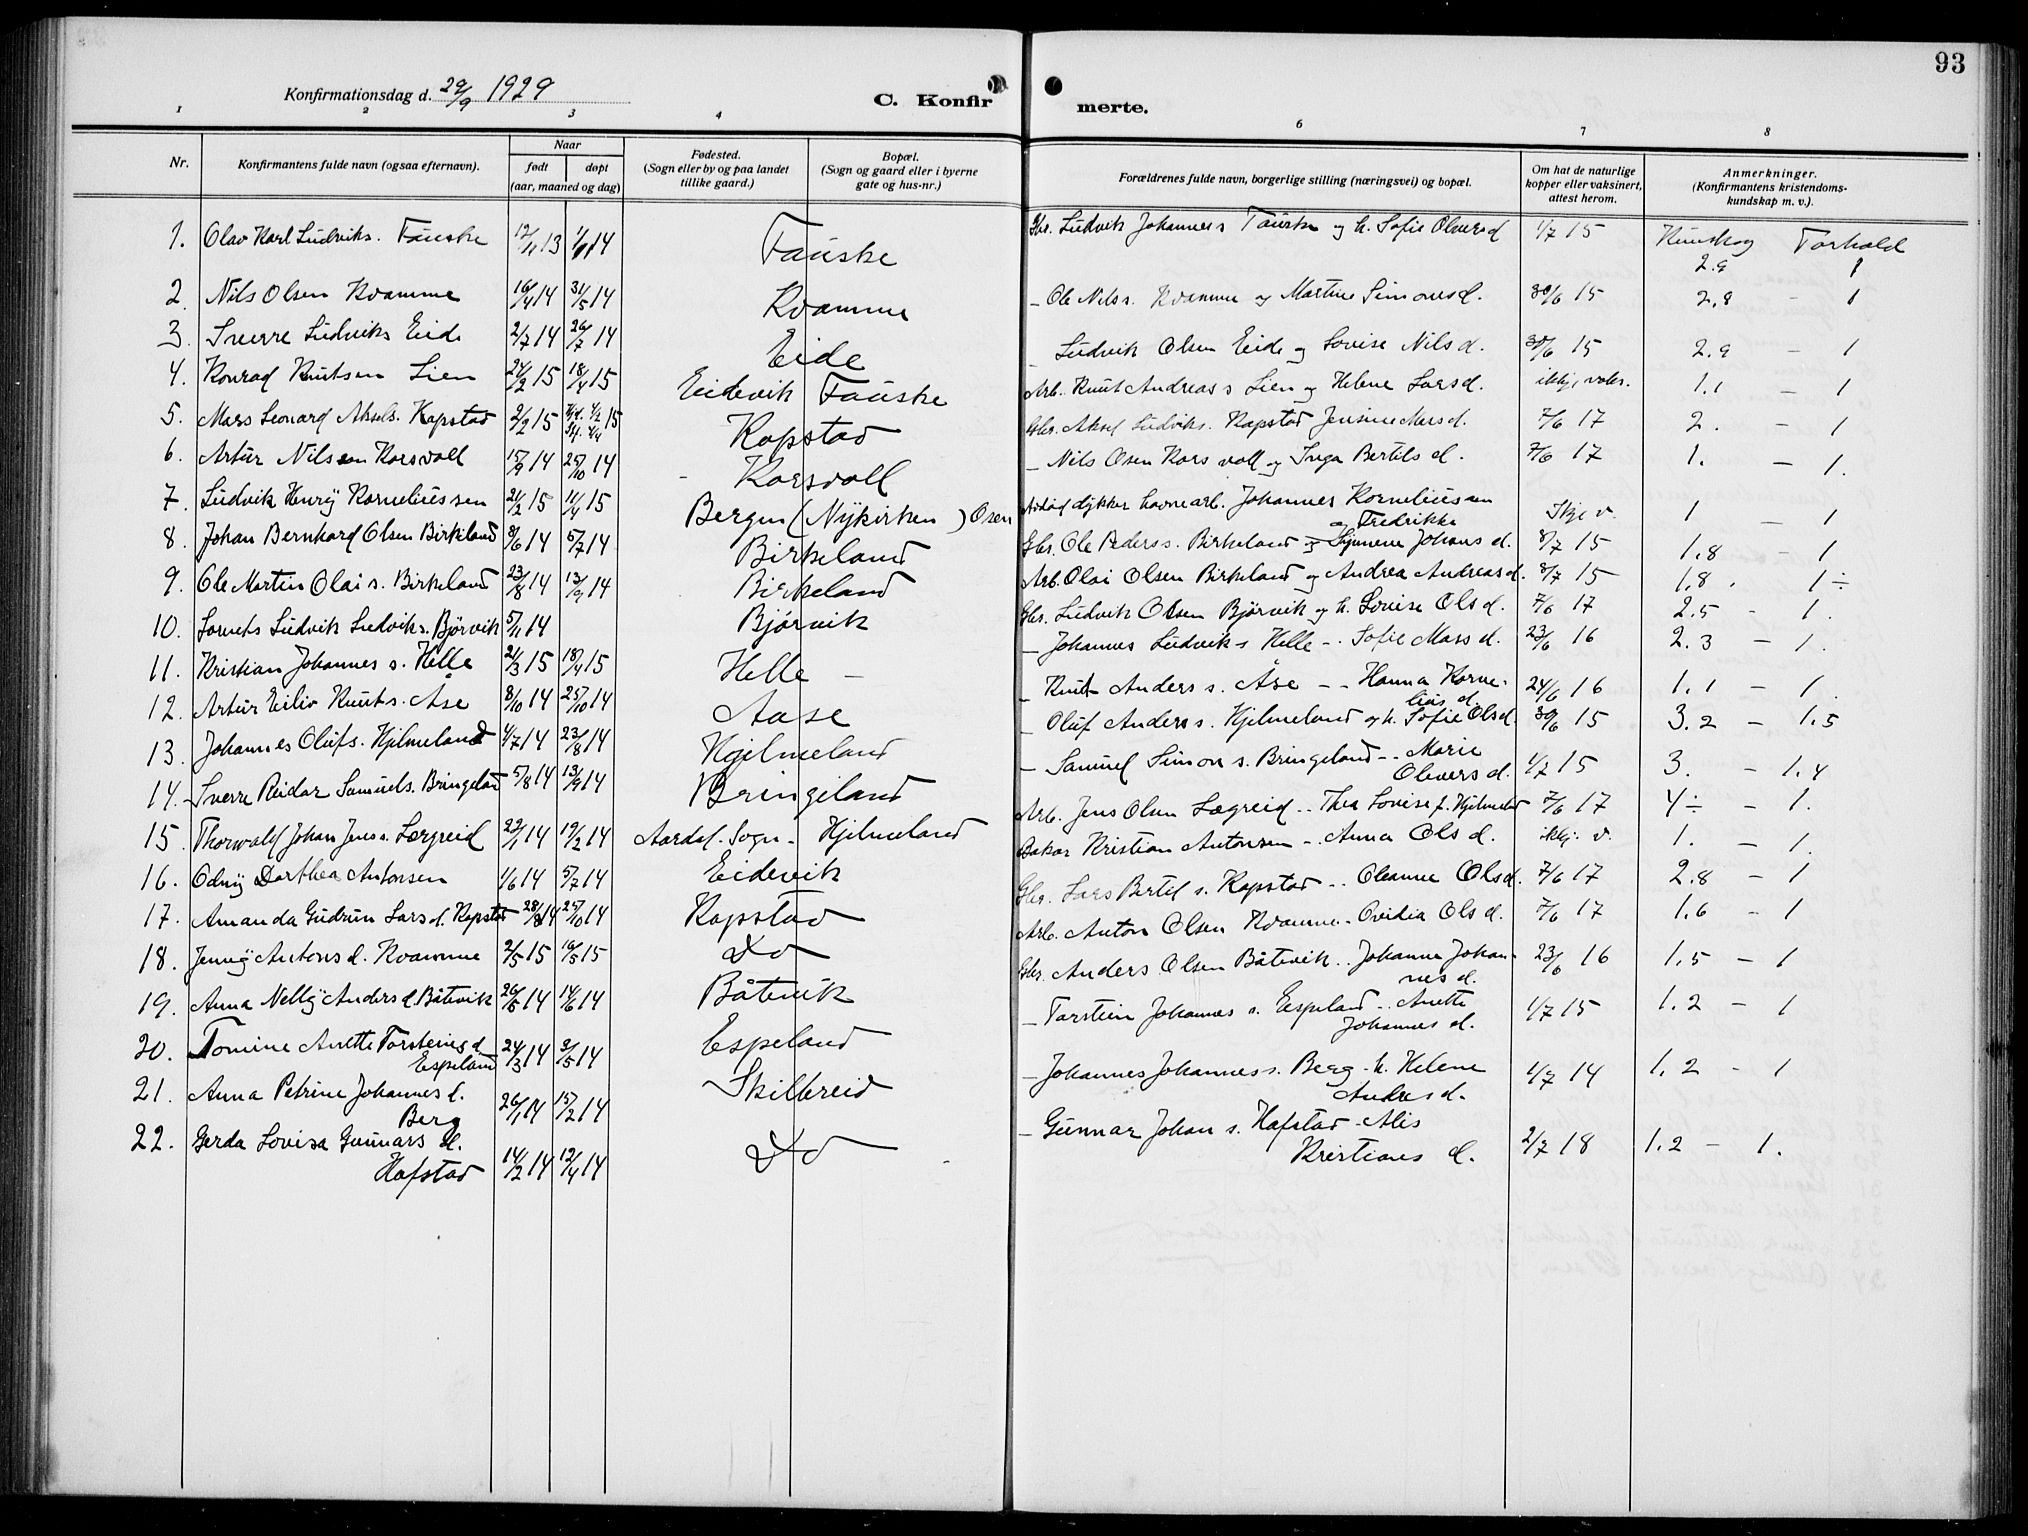 93
Konfirmationsdag d. 29/9 1929
C. Konfirmerte.
1 2 3 4 6 7 8
Nr. Konfirmantens fulde navn (ogsaa efternavn). Naar født døpt (aar, maaned og dag) Fødested. (Sogn eller by og paa landet tillike gaard.) Bopæl. (Sogn og gaard eller i byerne gate og hus-nr.) Forældrenes fulde navn, borgerlige stilling (næringsvei) og bopæl. Om hat de naturlige kopper eller vaksinert, attest herom. Anmerkninger. (Konfirmantens kristendoms-kundskap m. v.).
1. Olav Karl Ludviks. Fauske 12/11 13 1/1 14 Fauske Gbr. Ludvik Johannes s. Fauske og h. Sofie Olvers d 1/7 15 Kunskog Forhold 2.9 1
2. Nils Olsen Kvamme 16/4 14 31/5 14 Kvamme - Ole Nils s. Kvamme og Martine Simons d. 30/6 15 2.8 - 1
3. Sverre Ludviks Eide 2/7 14 26/7 14 Eide - Ludvik Olsen Eide og Lovise Nils d. 30/6 15 2.9 - 1
4. Konrad Knutsen Lien 24/2 15 18/4 15 Eidevik Fauske Arb. Knut Andreas s Lien og Helene Lars d. ikkje vaks. 1.1 - 1
5. Mars Leonard Aksels. Kapstad 2/2 15 15 Kapstad Gbr. Aksel Ludviks. Kapstad Jensine Mars d. 7/6 17 2. - 1
6. Artur Nilssen Korsvoll 15/9 14 25/10 14 - Korsvoll - Nils Osen Korsvoll og Inga Bertils d. 7/6 17 1. - 1.
7. Ludvik Henry Korneliussen 21/2 15 11/4 15 Bergen (Nykirken) Osen dykker havnearb. Johannes Korneliussen og Fredrikke Ikje v. 1 - 1
8. Johan Bernhard Olsen Birkeland 8/6 14 5/7 14 Birkeland Gbr. Ole Peders s. Birkeland og Synneve Johans d. 8/7 15 1.8 - 1
9. Ole Martin Olai s. Birkeland 23/8 14 13/9 14 Birkeland Arb. Olai Olsen Birkeland og Andrea Andreas d. 8/7 15 1.8. 1÷
10. Laurits Ludvik Ludviks. Bjørvik 5/11 14 Bjørvik Gbr. Ludvik Olsen Bjørvik og h. Lovise Ols d. 7/6 17 2.5 - 1.
11. Kristian Johannes s. Helle 21/3 15 18/4 15 Helle - - Johannes Ludvik s Helle - Sofie Mars d. 23/6 16 2.3 - 1.
12. Artur Eiliv Knut s. Åse 8/10 14 25/10 14 Aase - Knut Anders s. Åse - - Hanna Kornelius d. 24/6 16 1.1 - 1.
13. Johannes Olufs. Hjelmeland 4/7 14 23/8 14 Hjelmeland - Oluf Anders s. Hjelmeland og h. Sofie Ols d. 30/6 15 3.2 - 1.5
14. Sverre Reidar Samuels. Bringeland 5/8 14 13/9 14 Bringeland - Samuel Simon s. Bringeland - - Marie Olevers d. 1/7 15 3. - 1.4
15. Thorwald Johan Jens s. Lægreid 22/1 14 19/2 14 Aardal. Sogn - Hjelmeland Arb. Jens Olsen Lægreid - - Thea Lovise f. Hjelmeland 7/6 17 4÷ - 1.
16. Odny Dorthea Antonsen 1/6 14 5/7 14 Eidevik Bakar Kristian Antonsen - Anna Ols d. ikkj. v. 1. - 1.
17. Amanda Gudrun Lars d. Kapstad 28/8 14 25/10 14 Kapstad Gbr. Lars Bertel s. Kapstad - - Oleanne Ols d. 7/6 17 2.8 - 1
18. Jenny Antons d. Kvamme 2/5 15 16/5 15 Do Arb. Anton Olsen Kvamme - Ovidia Ols d. 7/6 17 1.6 - 1
19. Anna Nelly Anders d. Båtevik 26/5 14 14/6 14 Båtevik Gbr. Anders Olsen Båtevik. Johanne Johannes d. 23/6 16 1.5 - 1
20. Tomine Anette Torsteins d Espeland 24/3 14 3/5 14 Espeland - Torstein Johannes s. Espeland - Anette Johannes d. 1/7 15 1.2 - 1
21. Anna Petrine Johannes d. Berg 26/1 14 15/2 14 Skilbreid - Johannes Johannes s. Berg - h. Helene Andres d. 1/7 14 1.2 - 1
22. Gerda Lovisa Gunnars d. Hafstad 14/2 14 12/4 14 Do - Gunnar Johan s. Hafstad - Alis Kristians d. 2/7 18 1.2 - 1.